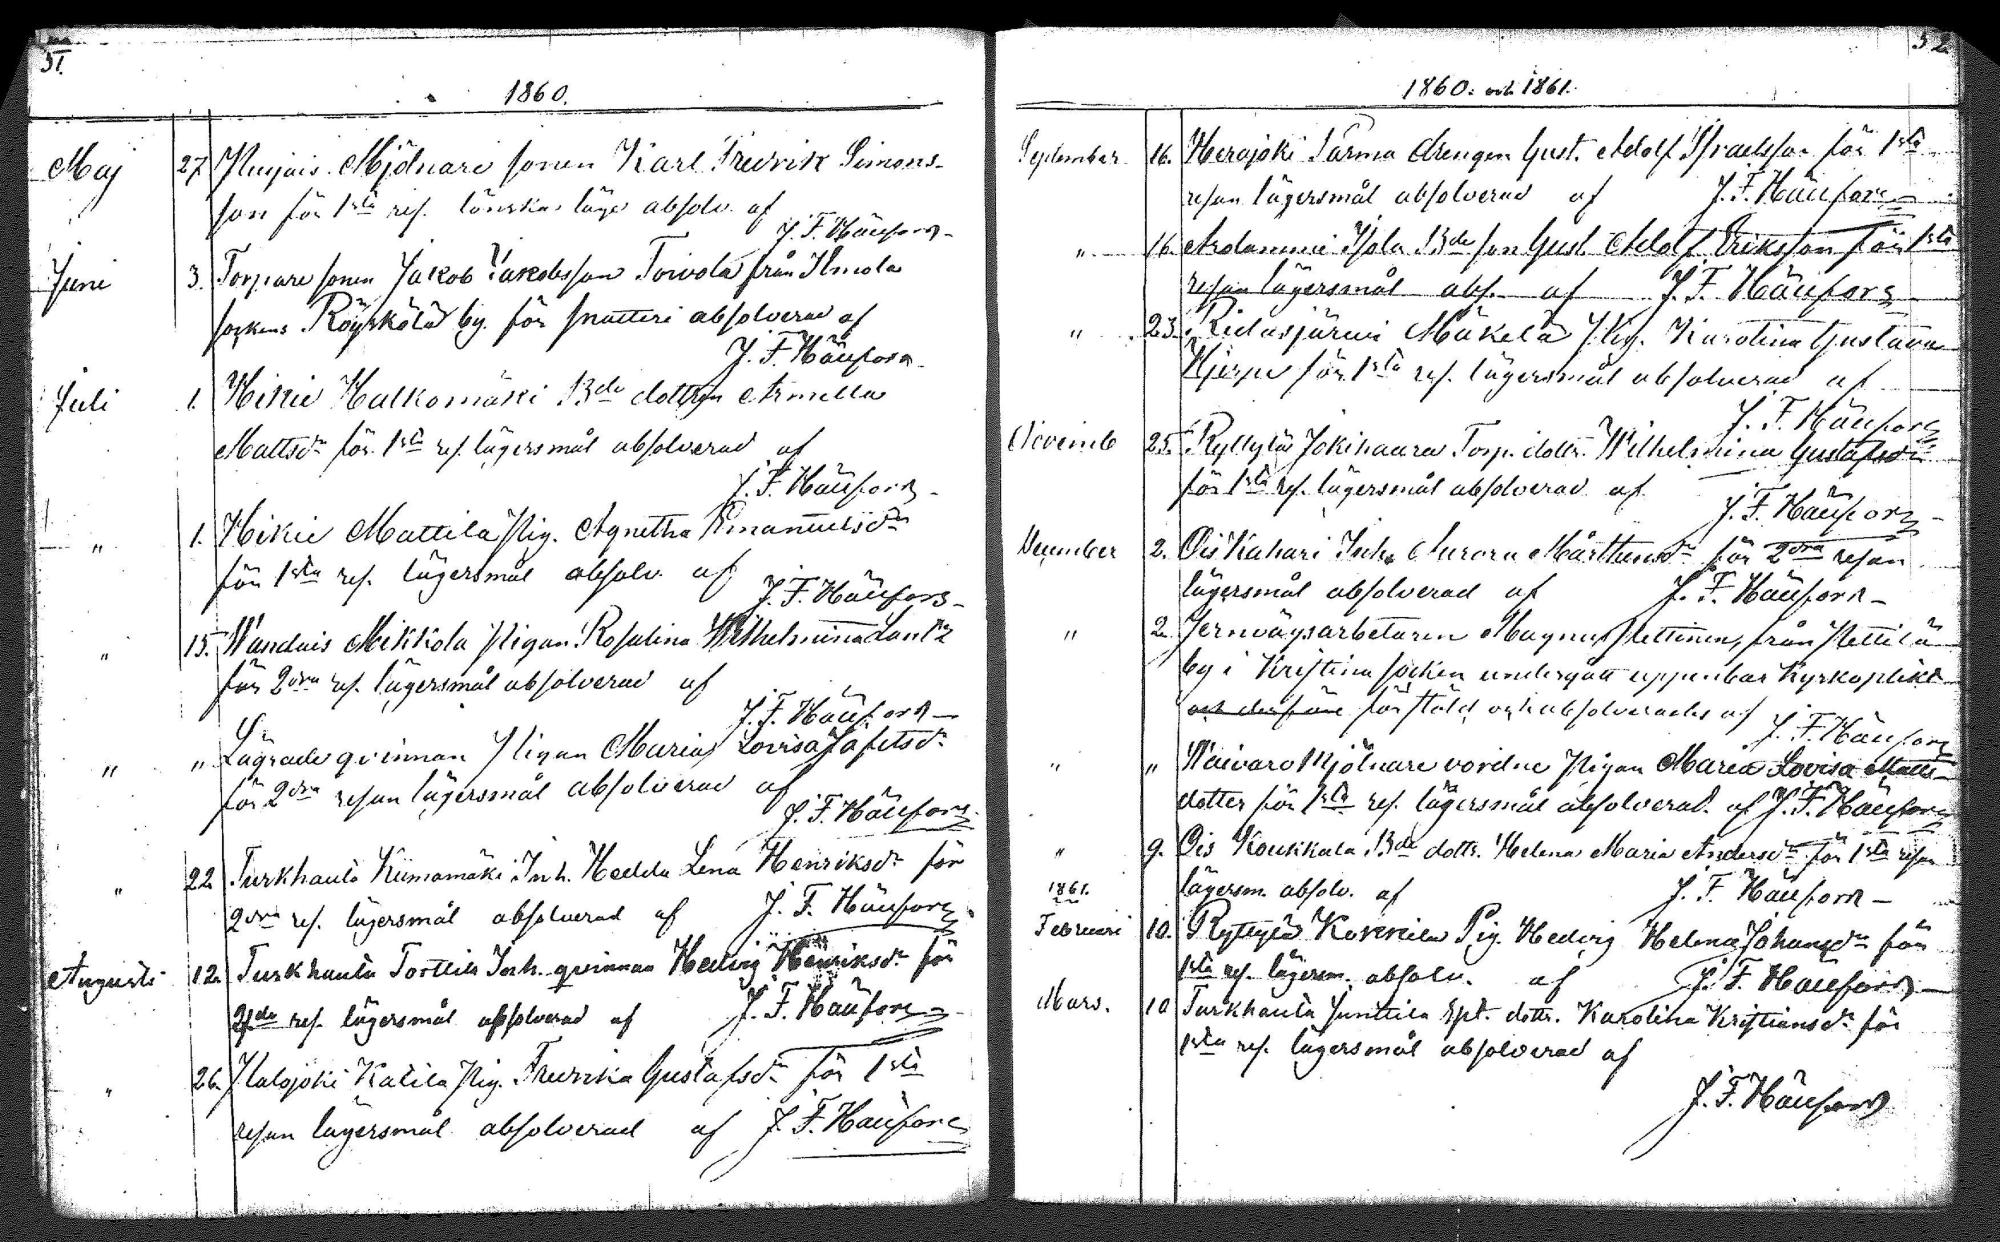 51.
1860.
Maj 27. Mjölnare sonen Karl Fredrik Simons-
son för 1sta res. lönska läge absolv. af
J. F. Häufors
Juni 3. Torpare sonen Jakob Jakobsson Toivola från Ilmola
sockens Röyskölä by. för snatteri absolverad af
J. F. Häufors
Juli 1. Hikiä Halkomäki Bde dottren Armella
Mattsdr för 1sta res. lägersmål absolverad af
J. F. Häufors
" 1. Hikiä Mattila Pig. Agnetha Emanuelsdr
för 1sta res. lägersmål absolv. af
J. F. Häufors
" 15. Mikkola Pigan Rosalina Wilhelmina Lantz
för 2dra res. lägersmål absolverad af
J. F. Häufors
" " Lägrade qvinnan Pigan Maria Lovisa Jafetsdr
för 2dra resan lägersmål absolverad af
J. F. Häufors
" 22. Turkhauta Kiimamäki Inh. Hedda Lena Henriksdr för
2dra res. lägersmål absolverad af J. F. Häufors
Augusti 12. Turkhauta Torttila Inh. qvinnan Hedvig Henriksdr för
res. lägersmål absolverad af J. F. Häufors
" 26. Halojoki Katila Pig. Fredrika Gustafsdr för 1sta
resan lägersmål absolverad af J. F. Häufors
52.
1860. och 1861.
September 16. Herajoki Parma drengen Gust. Adolf Israelsson för 1sta
resan lägersmål absolverad af J. F. Häufors
" 16. Isola Bde son Gust. Adolf Eriksson för 1sta
resan lägersmål abs. af J. F. Häufors
" 23. Ridasjärvi Mäkelä Pig. Karolina Gustava
Hjerpe för 1sta res. lägersmål absolverad af
J. F. Häufors
Novemb 25. Ryttylä Jokihaara Torp. dottr. Wilhelmina Gustafsdr
för 1sta res. lägersmål absolverad af
J. F. Häufors
December 2. Ois Kahari Inh. Aurora Mårttensdr för 2dra resan
lägersmål absolverad af J. F. Häufors
" 2. Jernvägsarbetaren Magnus Pettinen, från Pettilä
by i Kristina socken undergått uppenbar Kyrkoplikt
förstäld och absolverades af J. F. Häufors
" " Waivaro Mjölnare vordne Pigan Maria Lovisa Matts-
dotter för 1sta res. lägersmål absolverad. af J. F. Häufors
" 9. Ois Koukkala Bde dottr. Helena Maria Andersdr för 1sta resan
lägersm. absolv. af J. F. Häufors
1861.
Februari 10. Ryttylä Kokkila Pig. Hedvig Helena Johansdr för
1sta res. lägersm. absolv. af J. F. Häufors
Mars. 10 Turkhauta Junttila Spt. dottr. Karolina Kristiansdr för
1sta res. lägersmål absolverad af
J. F. Häufors